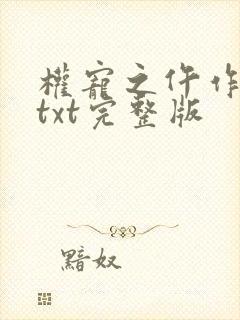 權寵之仵作
txt完整版
黯奴